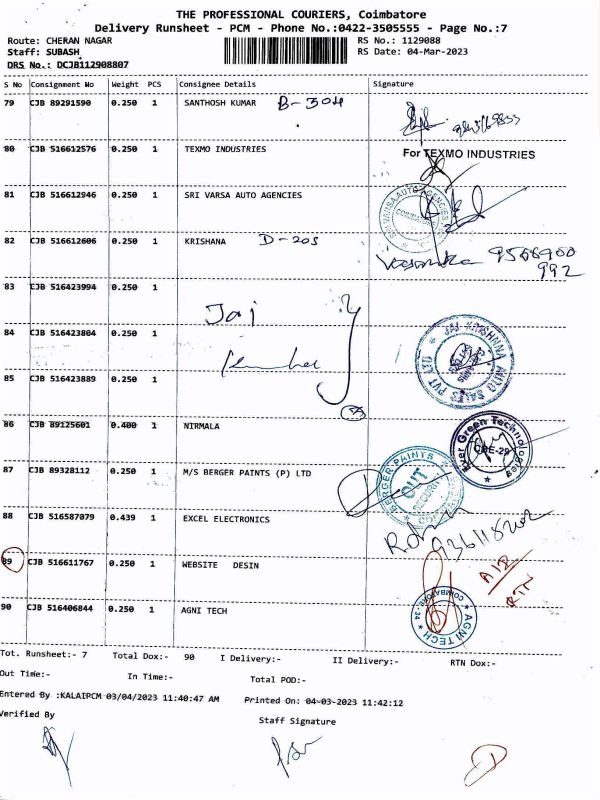 THE PROFESSIONAL COURIERS, Coimbatore
Delivery Runsheet - PCM - Phone No.:0422-3505555 - Page No.:7
Route: CHERAN NAGAR RS No.: 1129088
Staff: SUBASH RS Date: 04-Mar-2023
DRS No.: DCJB112908807
S No Consignment No Weight PCS Consignee Details Signature
79 CJB 89291590 0.250 1 SANTHOSH KUMAR B-304
80 CJB 516612576 0.250 1 TEXMO INDUSTRIES For TEXMO INDUSTRIES
81 CJB 516612946 0.250 1 SRI VARSA AUTO AGENCIES
82 CJB 516612606 0.250 1 KRISHANA D-205
992
83 CJB 516423994 0.250 1
Jai
84 CJB 516423804 0.250 1
JAI KRISHNA AUTO SALES PVT LTD
85 CJB 516423889 0.250 1
86 CJB 89125601 0.400 1 NIRMALA
Green Technologies
CBE-29
87 CJB 89328112 0.250 1 M/S BERGER PAINTS (P) LTD
BERGER PAINTS
OUT
SECURITY
88 CJB 516587079 0.439 1 EXCEL ELECTRONICS
89 CJB 516611767 0.250 1 WEBSITE DESIN
RTN
90 CJB 516406844 0.250 1 AGNI TECH
AGNI TECH COIMBATORE-34
Tot. Runsheet:- 7 Total Dox:- 90 I Delivery:- II Delivery:- RTN Dox:-
Out Time:- In Time:- Total POD:-
Entered By :KALAIPCM 03/04/2023 11:40:47 AM Printed On: 04-03-2023 11:42:12
Verified By Staff Signature